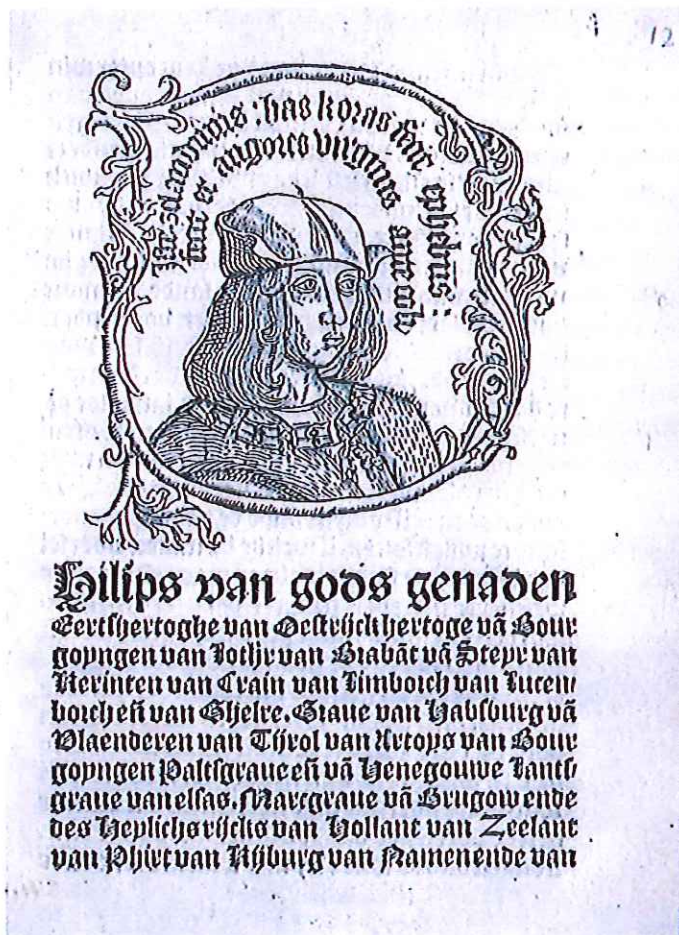 12
has
virginis
hilips van gods genaden
Eertshertoghe van Oestrijck hertoge vã Bour
goyngen van lothr van Brabãt vã Steyr van
Kerinten van Crain van limborch van lucen/
borch eñ van Ghelre. Graue van Habsburg vã
Vlaenderen van Tijrol van Artoys van Bour
goyngen Paltsgraue eñ vã Henegouwe lants/
graue van elsas. Marcgraue vã Burgow ende
des Heylichs rijcks van Hollant van Zeelant
van Phirt van Kijburg van Namen ende van